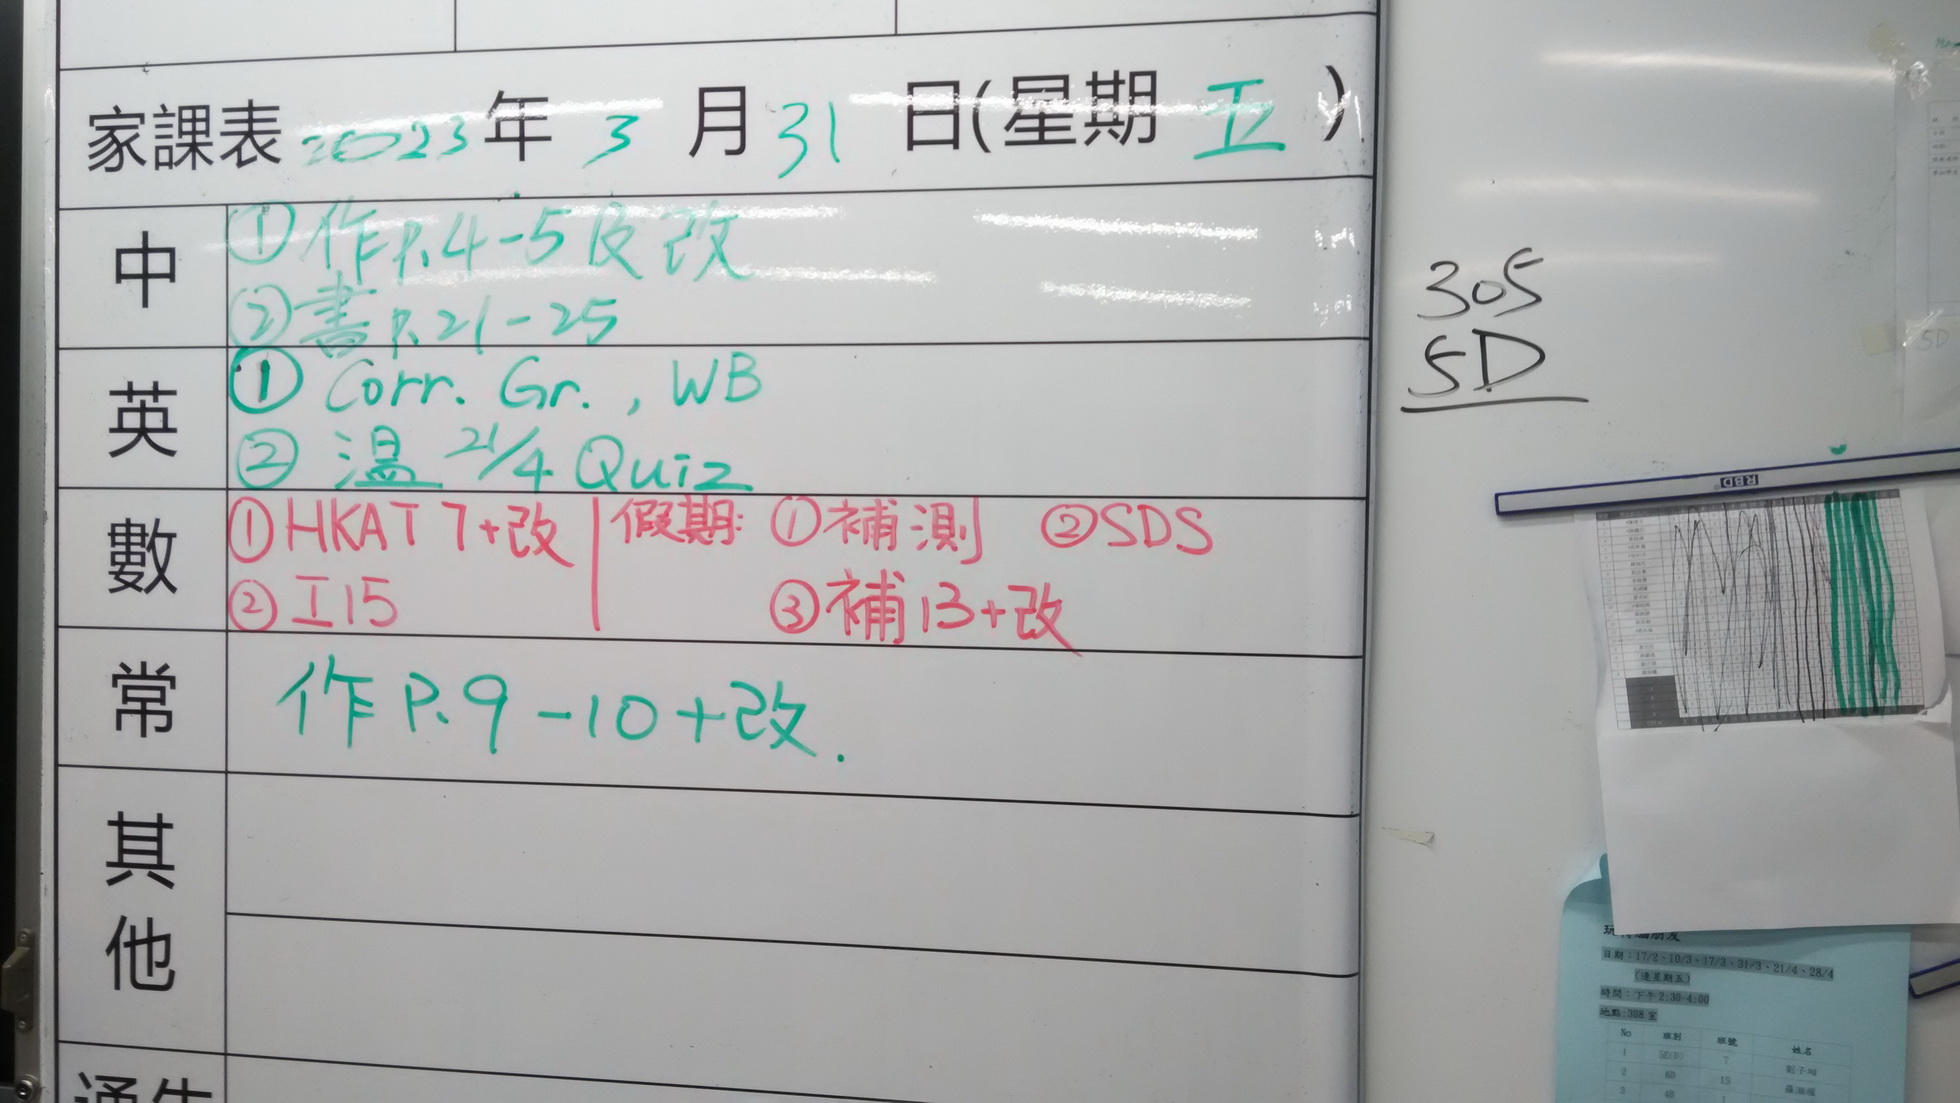 家課表 2023 年 3 月 31 日(星期 五 )
中
①作P.4-5及改
②書P.21-25
英
① Corr. Gr. , WB
② 温 21/4 Quiz
數
①HKAT 7+改 假期: ①補測 ②SDS
②工15 ③補13+改
常
作P.9-10+改.
其
他
305
5D
RBD
日期:17/2、10/3、17/3、31/3、21/4、28/4
(逢星期五)
時間:下午2:30-4:00
地點:308室
No 班別 班號 姓名
1 7
2 6D 15
3 4B 1